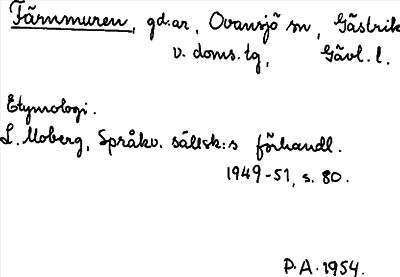 Färnmuren, gd:ar, Ovansjö sn, Gästrik
v. doms.tg, Gävl. l.
Etymologi.
L. Moberg, Språkv. sällsk:s förhandl.
1949-51, s. 80.
P.A. 1954.